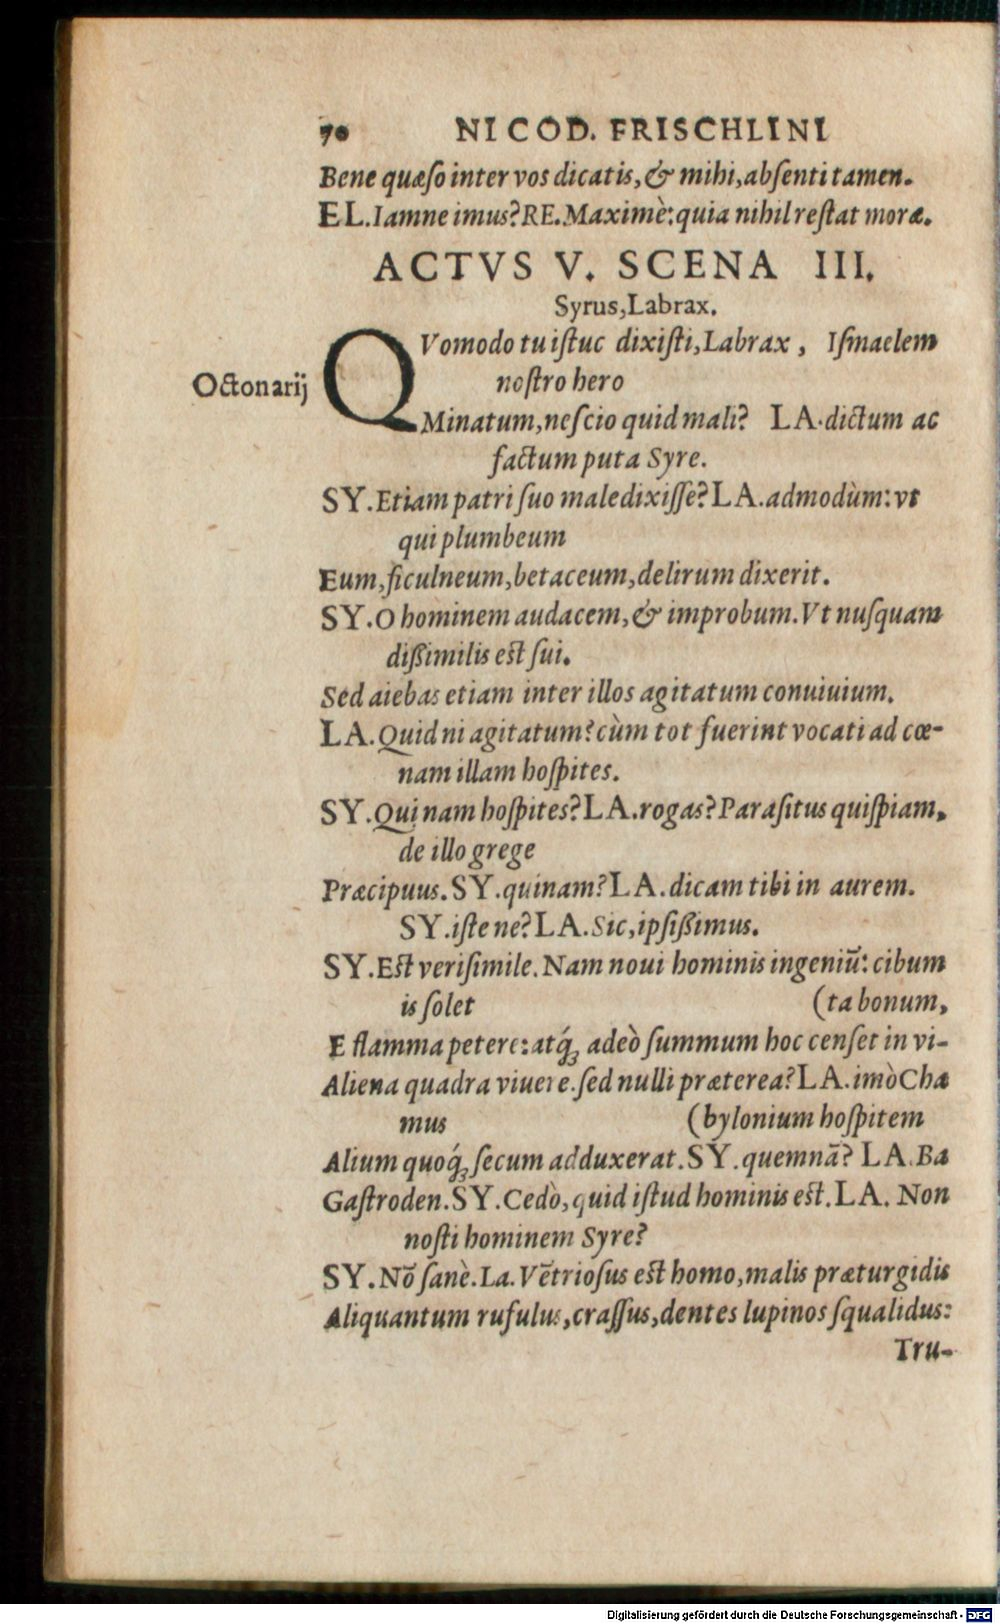 70 NICOD. FRISCHLINI
Bene quæſo inter vos dicatis, & mihi, abſenti tamen.
EL. Iamne imus? RE. Maximè: quia nihil reſtat moræ.
ACTVS V. SCENA III.
Syrus, Labrax.
QVomodo tu iſtuc dixiſti, Labrax, Iſmaelem
Octonarij
noſtro hero
Minatum, neſcio quid mali? LA. dictum ac
factum puta Syre.
SY. Etiam patri ſuo maledixiſſe? LA. admodùm: vt
qui plumbeum
Eum, ficulneum, betaceum, delirum dixerit.
SY. O hominem audacem, & improbum. Vt nuſquam
dißimilis eſt ſui.
Sed aiebas etiam inter illos agitatum conuiuium.
LA. Quid ni agitatum? cùm tot fuerint vocati ad cœ-
nam illam hoſpites.
SY. Qui nam hoſpites? LA. rogas? Paraſitus quiſpiam,
de illo grege
Præcipuus. SY. quinam? LA. dicam tibi in aurem.
SY. iſte ne? LA. Sic, ipſißimus.
SY. Eſt veriſimile. Nam noui hominis ingeniũ: cibum
is ſolet (ta bonum,
E flamma petere: atq́ꝫ adeò ſummum hoc cenſet in vi-
Aliena quadra viuere. ſed nulli præterea? LA. imò Cha
mus (bylonium hoſpitem
Alium quoq́ꝫ ſecum adduxerat. SY. quemnã? LA. Ba
Gaſtroden. SY. Cedò, quid iſtud hominis eſt. LA. Non
noſti hominem Syre?
SY. Nõ ſanè. La. Vẽtrioſus eſt homo, malis præturgidis
Aliquantum rufulus, craſſus, dentes lupinos ſqualidus:
Tru-
Digitalisierung gefördert durch die Deutsche Forschungsgemeinschaft - DFG